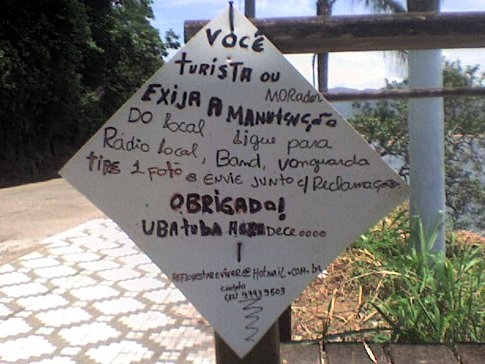 VOCÊ
TURISTA OU
MORADOR
EXIJA A MANUTENÇÃO
DO LOCAL. LIGUE PARA
RÁDIO LOCAL, BAND, VANGUARDA
TIRE 1 FOTO E ENVIE JUNTO C/ RECLAMAÇÃO
OBRIGADO!
UBATUBA AGRADECE....
@HOTMAIL.COM.BR